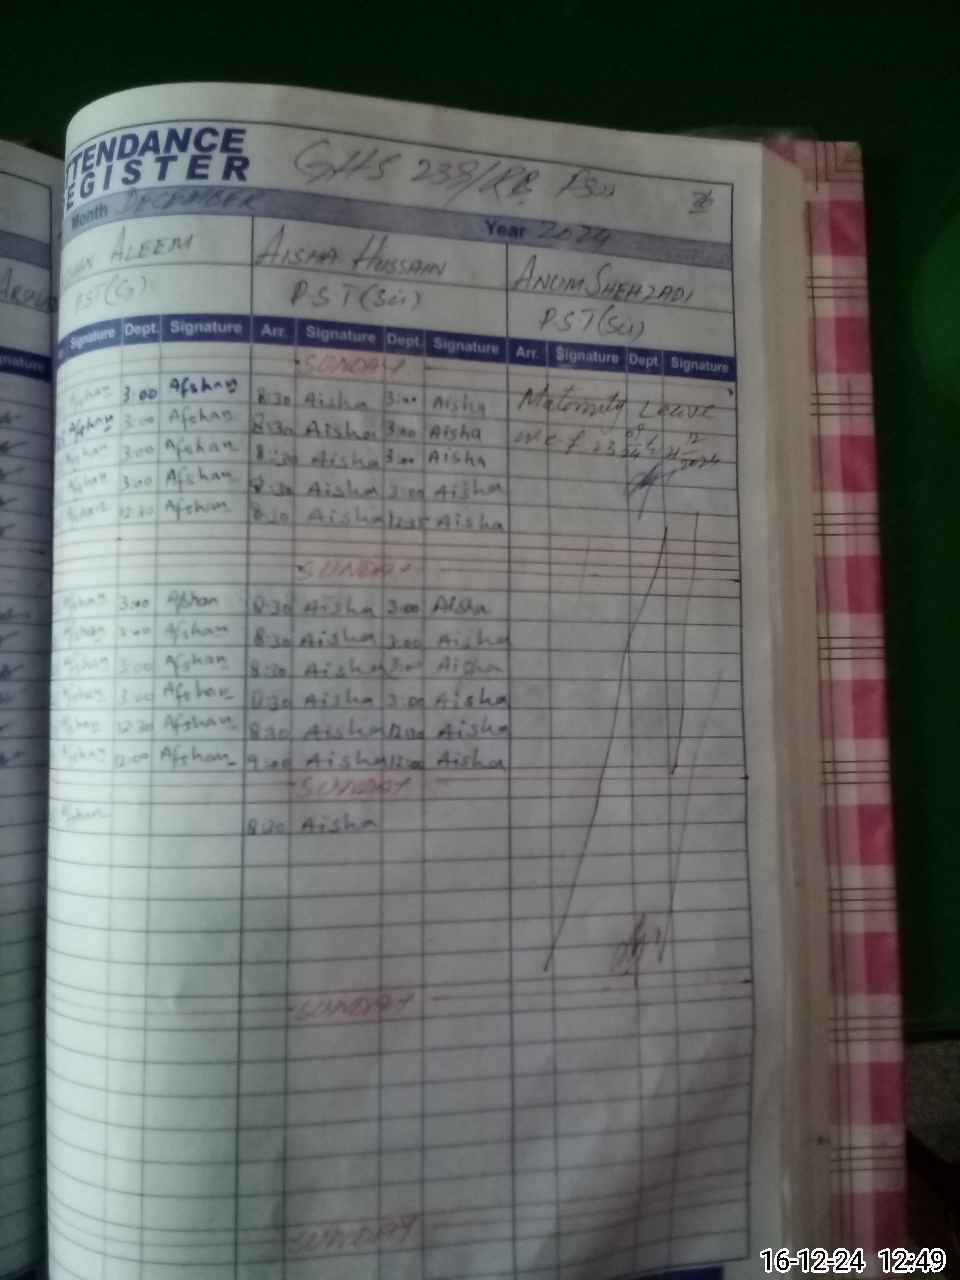 TTENDANCE
EGISTER
GHS 238/RB
Month DECEMBER Year 2024
ALEEM AISHA HUSSAIN ANUM SHEHZADI
PST(G) P.S.T(Sci) P.S.T(Sci)
Signature Dept. Signature Arr. Signature Dept. Signature Arr. Signature Dept. Signature
SUNDAY
Afshan 3:00 Afshan 8:30 Aisha 3:00 Aisha Maternity Leave
Afshan 3:00 Afshan 8:30 Aisha 3:00 Aisha w.e.f
Afshan 3:00 Afshan 8:30 Aisha 3:00 Aisha
Afshan 3:00 Afshan 8:30 Aisha 3:00 Aisha
Afshan Afshan 8:30 Aisha Aisha
SUNDAY
Afshan 3:00 Afshan 8:30 Aisha 3:00 Aisha
Afshan 3:00 Afshan 8:30 Aisha 3:00 Aisha
Afshan 3:00 Afshan 8:30 Aisha 3:00 Aisha
Afshan 3:00 Afshan 8:30 Aisha 3:00 Aisha
Afshan 12:30 Afshan 8:30 Aisha Aisha
Afshan 12:00 Afshan 9:00 Aisha 12:00 Aisha
SUNDAY
Afshan 8:30 Aisha
SUNDAY
SUNDAY
16-12-24 12:49